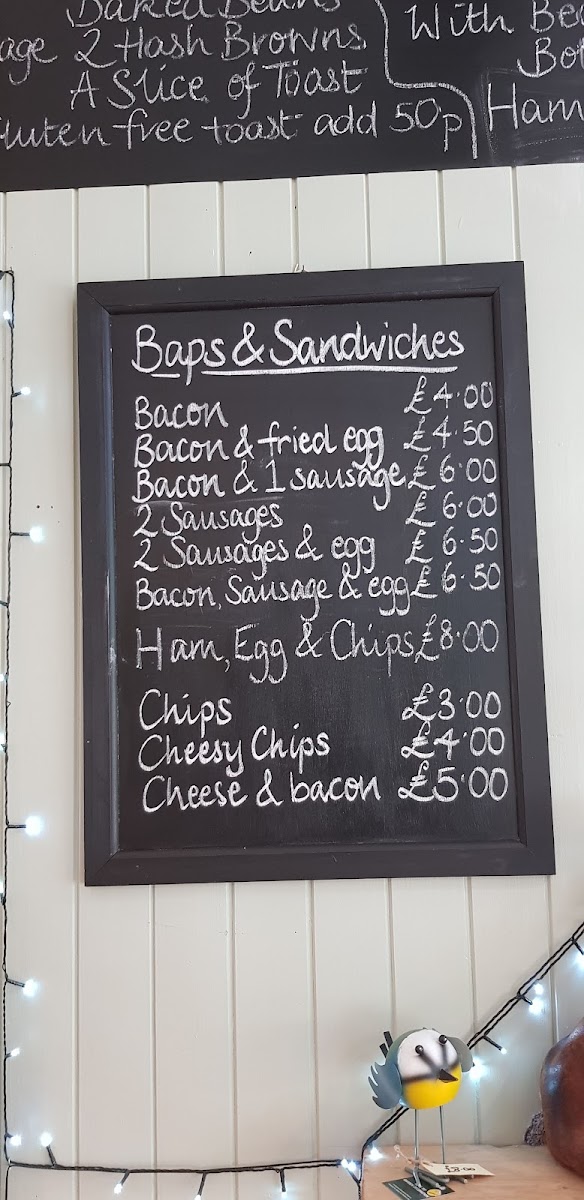 Baked Beans
age 2 Hash Browns
A Slice of Toast
Gluten free toast add 50p
With
Ham
Baps & Sandwiches
Bacon £4.00
Bacon & fried egg £4.50
Bacon & 1 sausage £6.00
2 Sausages £6.00
2 Sausages & egg £6.50
Bacon, Sausage & egg £6.50
Ham, Egg & Chips £8.00
Chips £3.00
Cheesy Chips £4.00
Cheese & bacon £5.00